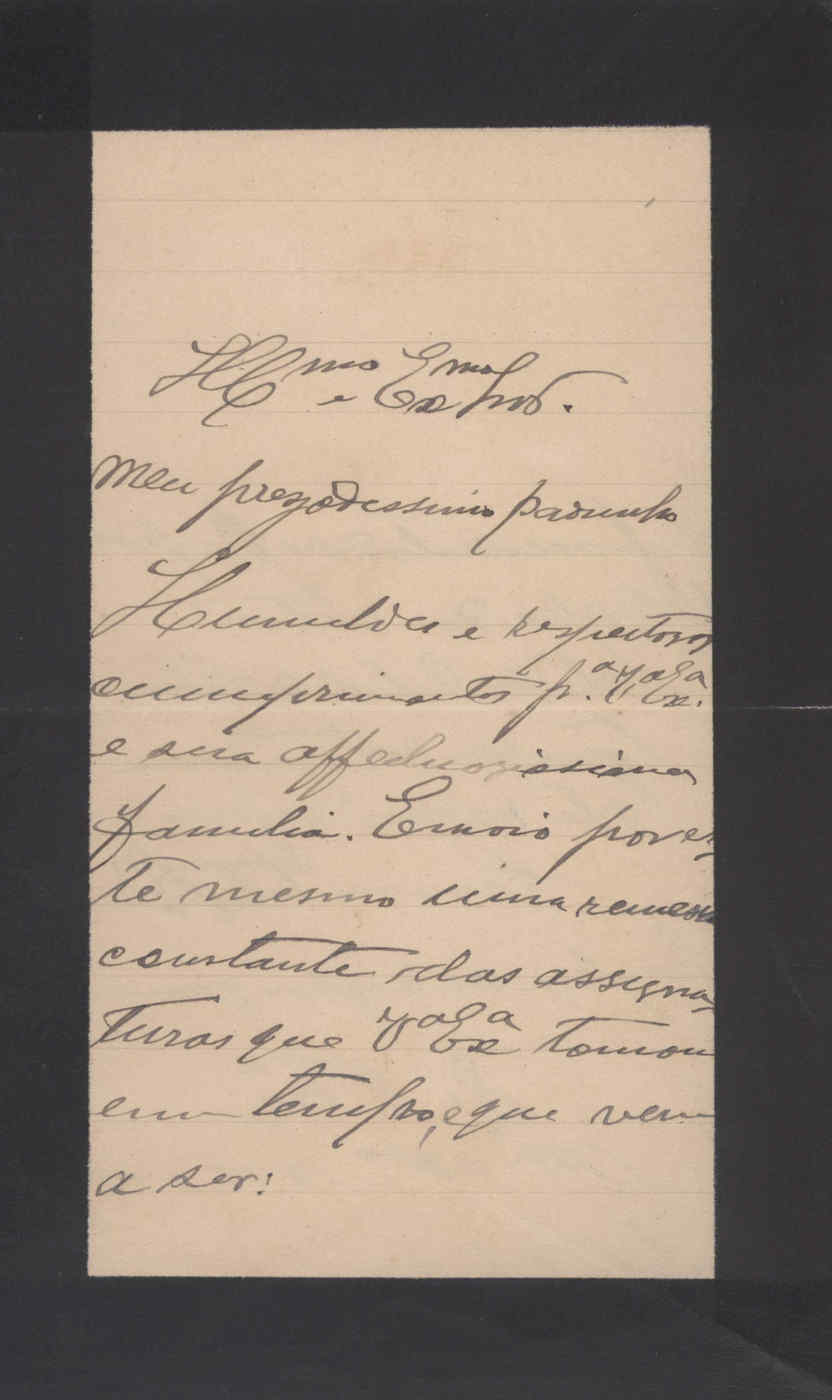 Ill.mo e Ex.mo Snr.
Meu prezadissimo padrinho
Humildes e respeitosos
cumprimentos p.ª V.ª Ex.ª
e sua affectuosissima
familia. Envio por es-
te mesmo uma remessa
constante das assigna-
turas que V.ª Ex.ª tomou
em tempo, e que vem
a ser: